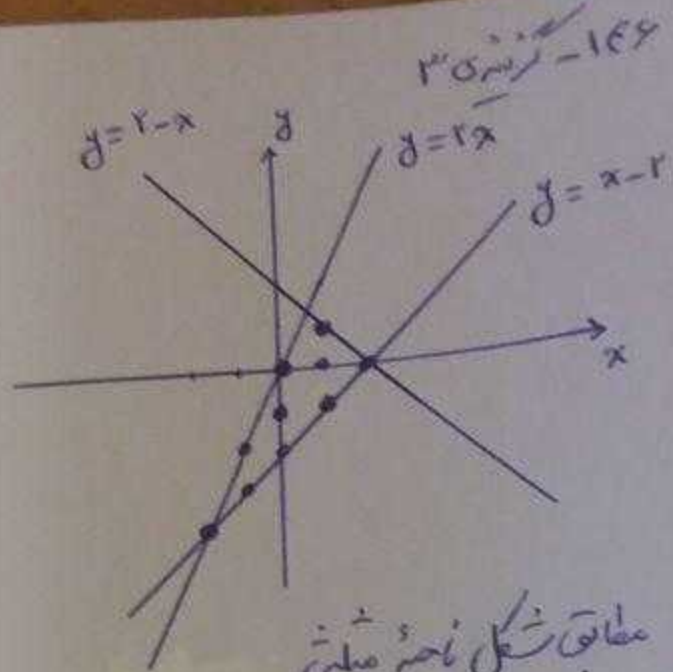 ۱۴۶- گزینه ۳
y=۲-x
y
y=۲x
y=x-۲
x
مطابق شکل ناحیهٔ مثلث